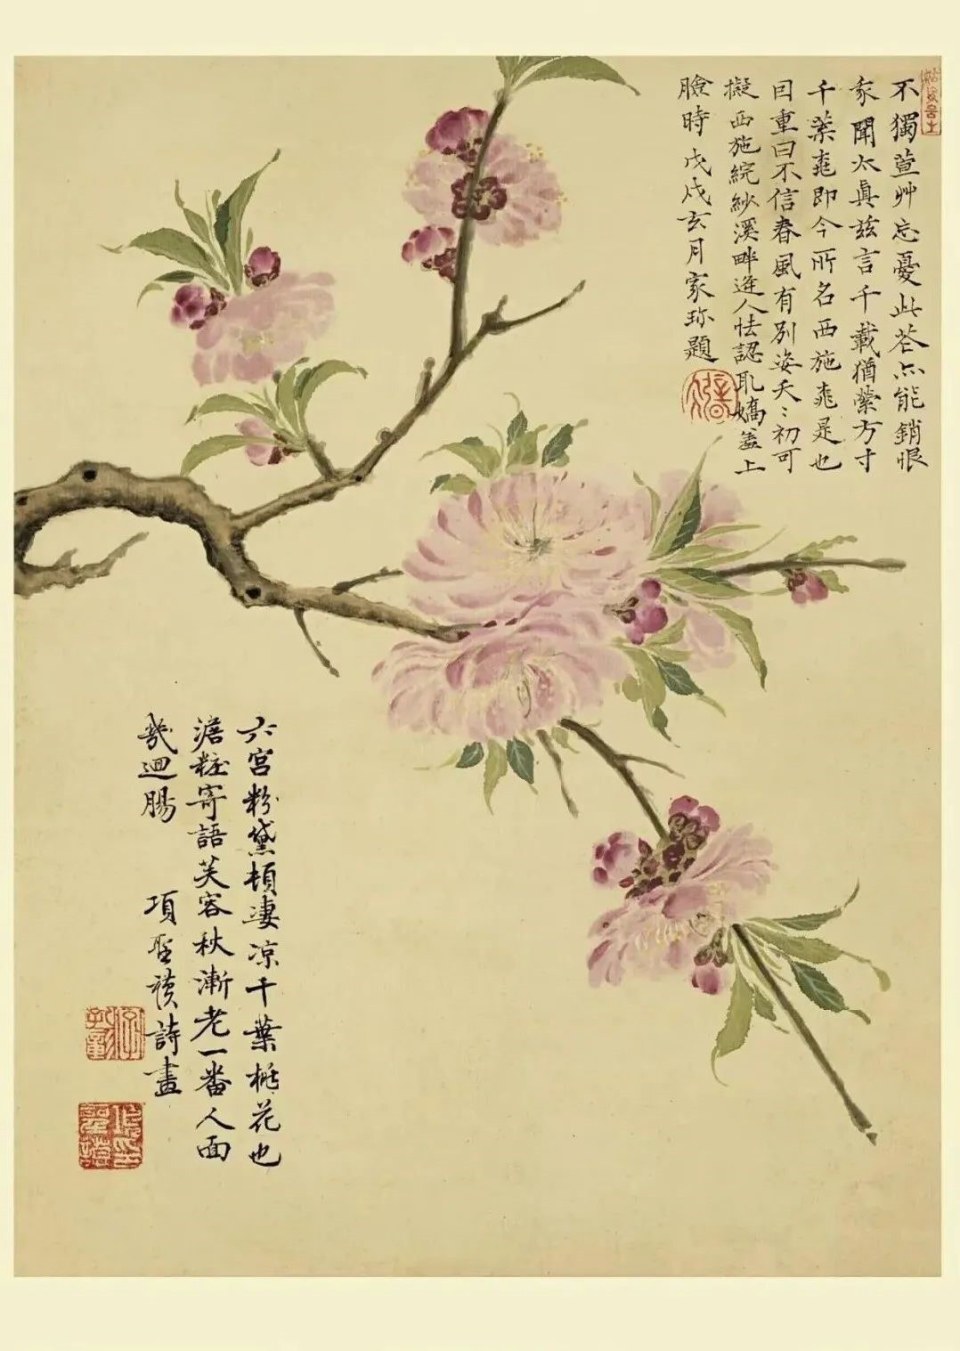 不獨萱艸忘憂此花亦能銷恨
聞太真茲言千載猶縈方寸
千葉桃即今所名西施桃是也
重曰不信春風有別姿夭〻初可
擬西施浣紗溪畔逢人怯認取嬌羞上
臉時戊戌玄月家珎題
六宮粉黛頓淒凉千葉桃花也
澹粧寄語芙容秋漸老一番人面
幾迴腸 項聖謨詩畫